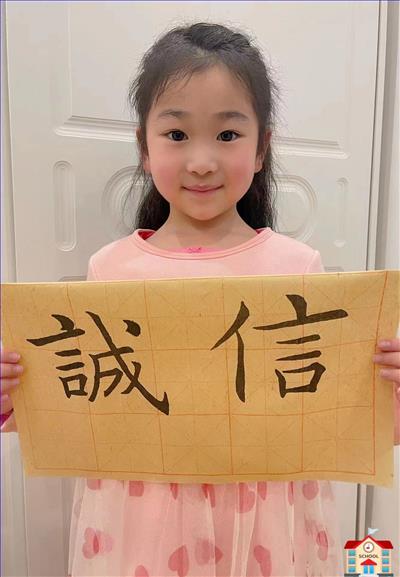 誠信
SCHOOL